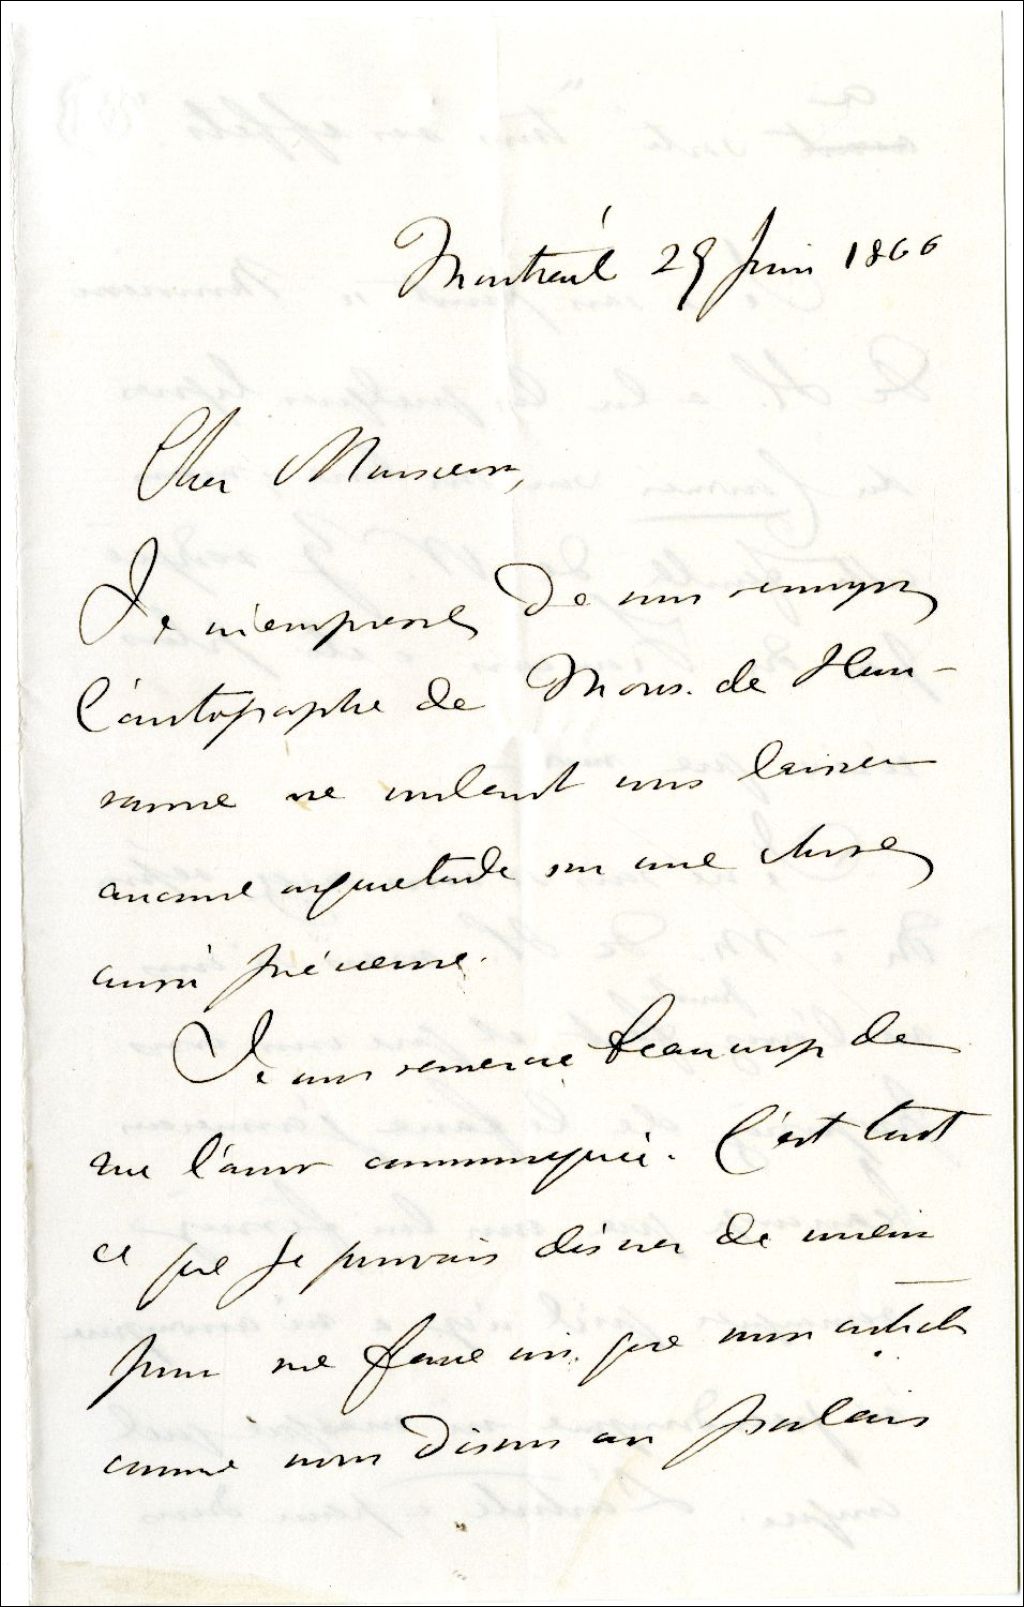 Montréal 29 Juin 1866
Cher Monsieur,
Je m'empresse de vous renvoyer
l'autographe de Mons. de Hau-
ranne ne voulant vous laisser
aucune inquietude sur une chose
aussi précieuse.
Je vous remercie beaucoup de
me l'avoir communiquée. C'est tout
ce que je pouvais désirer de mieux
pour me faire voir que mon article
comme nous disons au palais